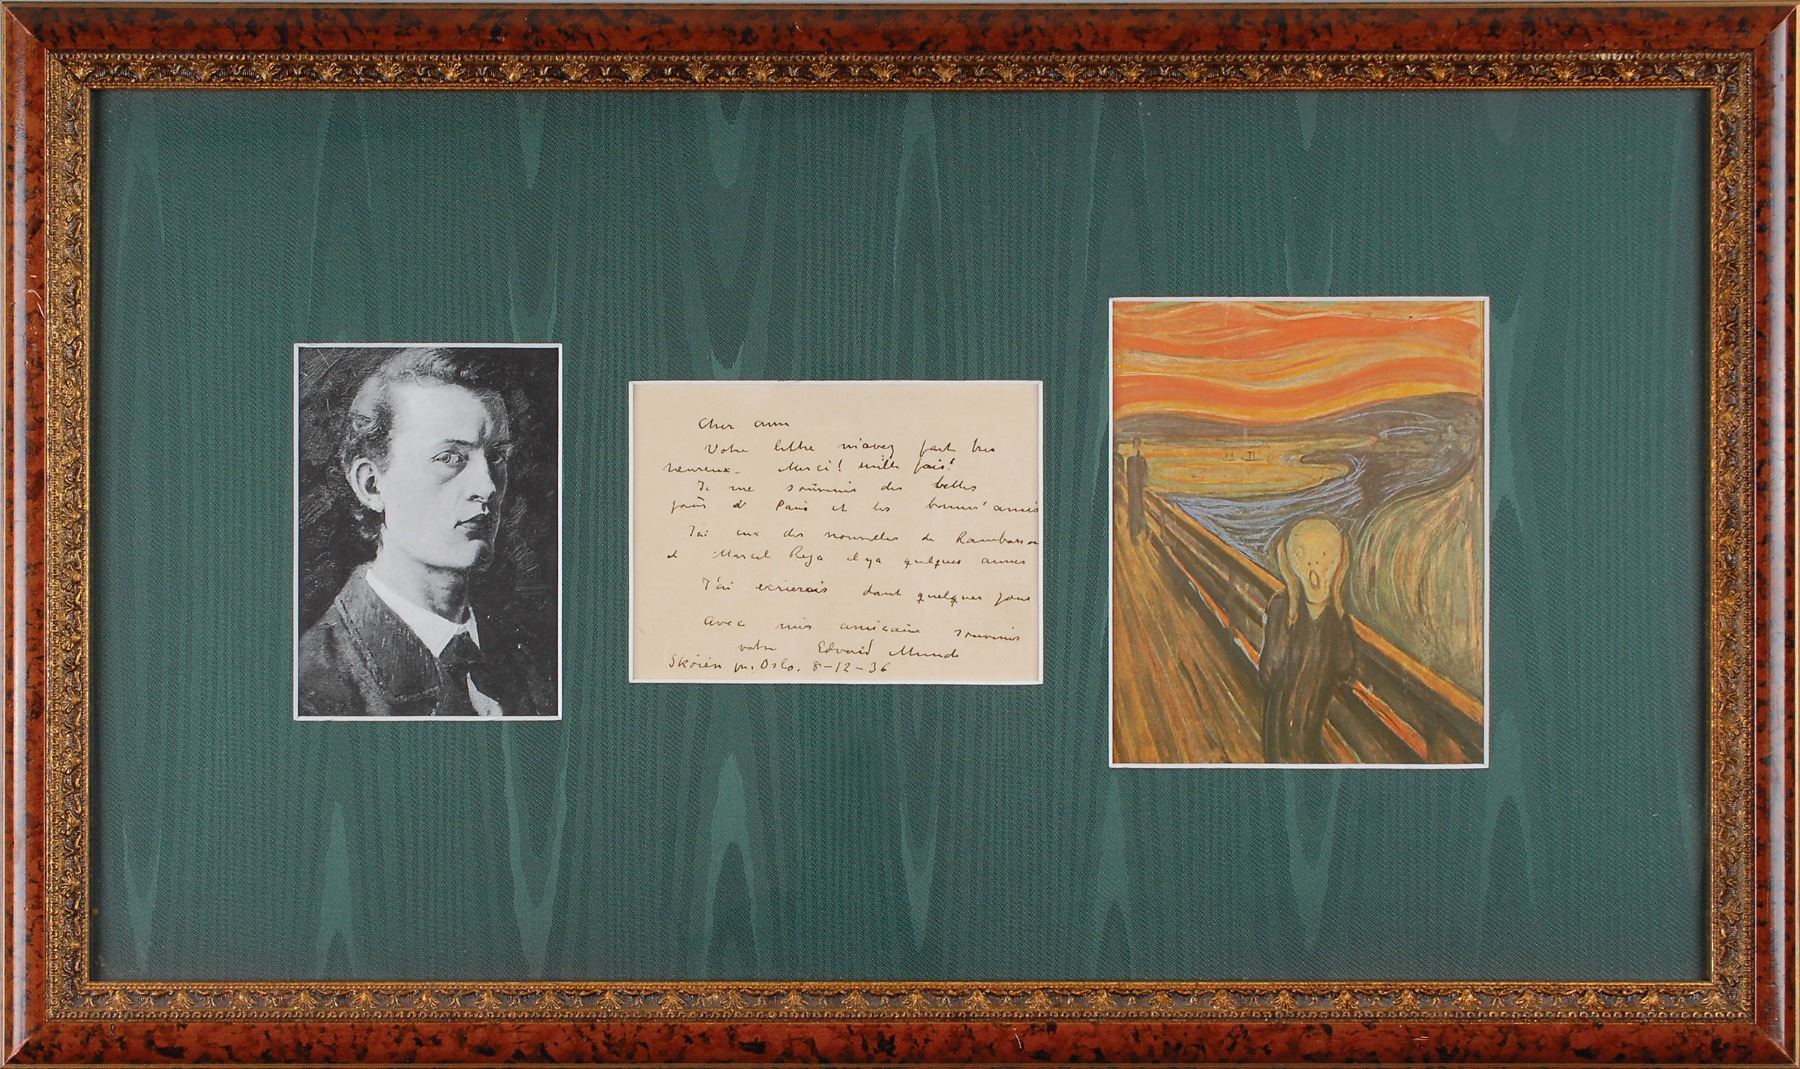 Cher ami
Votre lettre m'avez fait tres
heureux. Merci! mille fois!
Je me souvenis des belles
jours d' Paris et les bonnes amis
J'ai eux des nouvelles de
et Marcel Reja il ya quelques annes
J'ai ecrierais dant quelques jous
Avec mes amicaux souvenirs
votre Edvard Munch
Skøien pr. Oslo. 8-12-36